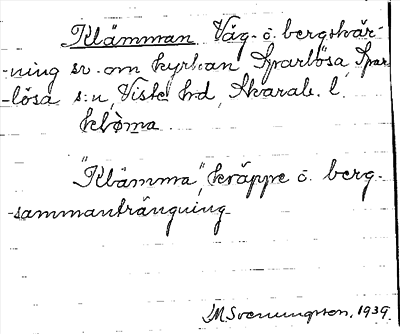 Klämman Väg- o. bergskär-
-ning sv. om kyrkan Sparlösa, Spar-
-lösa s:n, Viste hd, Skarab. l.
klo̊ma
"Klämma", kräppe o. berg-
-sammanträngning
M Svenungsson, 1939.